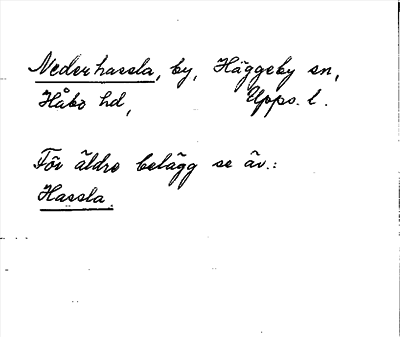 Nederhassla, by, Häggeby sn,
Håbo hd, Upps. l.
För äldre belägg se äv.:
Hassla.